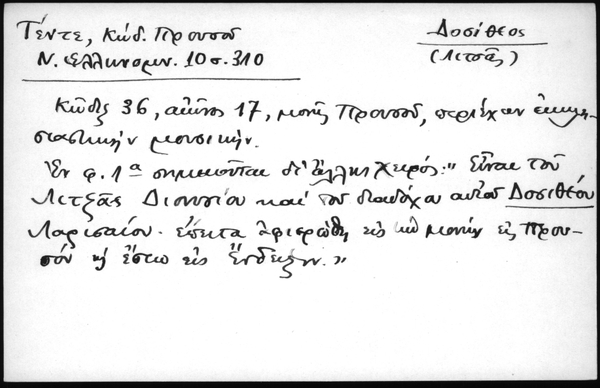 Τέντε, Κώδ. Προυσοῦ
Ν. Ἑλληνομν. 10 σ. 310
Δοσίθεος
(Λιτσᾶς)
Κῶδιξ 36, αἰῶνος 17, μονῆς Προυσοῦ, περιέχων ἐκκλη-
σιαστικὴν μουσικήν.
Ἐν φ. 1α σημειοῦται δι' ἄλλης χειρός: "Εἶναι τοῦ
Λιτζᾶς Διονυσίου καὶ τοῦ διαδόχου αὐτοῦ Δοσιθέου
Λαρισαίου. ἔπειτα ἀφιερώθη εἰς τὴν μονὴν εἰς Πρου-
σόν κ ἔστω εἰς ἔνδειξιν."